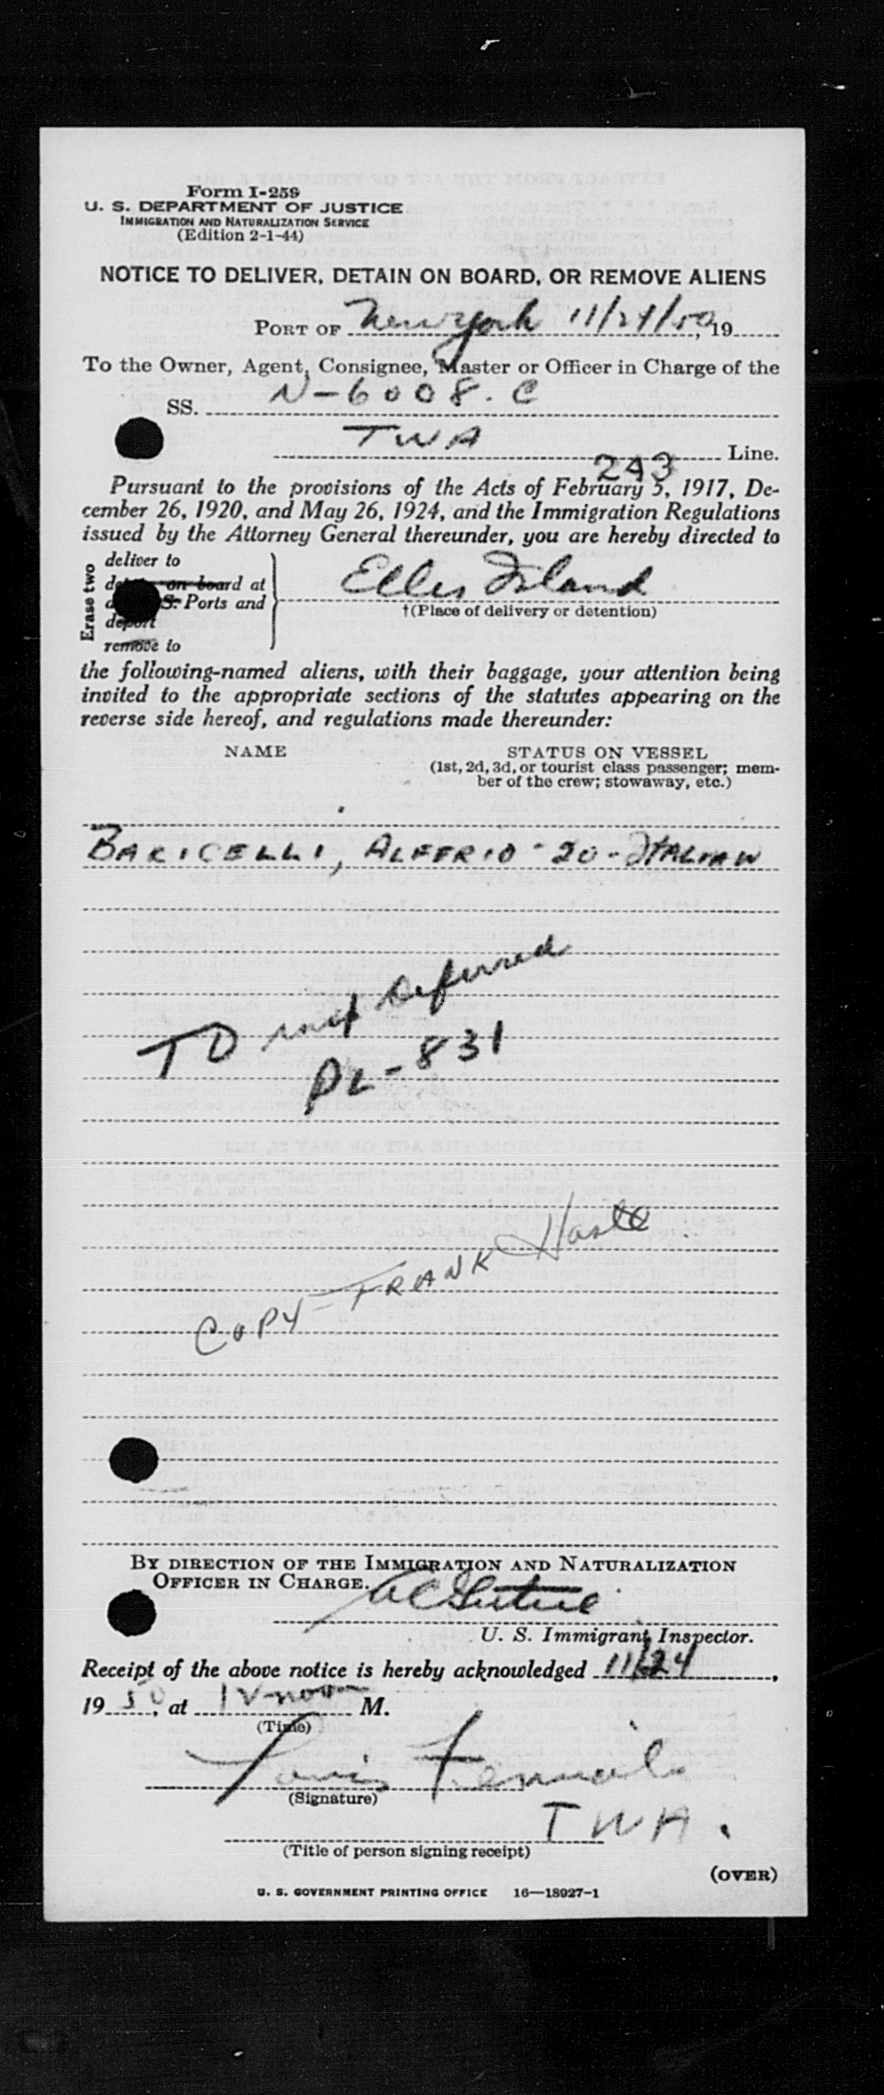 Form I-259
U. S. DEPARTMENT OF JUSTICE
IMMIGRATION AND NATURALIZATION SERVICE
(Edition 2-1-44)
NOTICE TO DELIVER, DETAIN ON BOARD, OR REMOVE ALIENS
PORT OF New York 11/24/50, 19
To the Owner, Agent, Consignee, Master or Officer in Charge of the
SS. N-6008.C
TWA Line.
243
Pursuant to the provisions of the Acts of February 5, 1917, De-
cember 26, 1920, and May 26, 1924, and the Immigration Regulations
issued by the Attorney General thereunder, you are hereby directed to
Erase two
deliver to
on board at
S. Ports and
deport
remove to
Ellis Island
†(Place of delivery or detention)
the following-named aliens, with their baggage, your attention being
invited to the appropriate sections of the statutes appearing on the
reverse side hereof, and regulations made thereunder:
NAME
STATUS ON VESSEL
(1st, 2d, 3d, or tourist class passenger; mem-
ber of the crew; stowaway, etc.)
BARICELLI, ALFERIO - 20 - ITALIAN
TD insp Deferred
PL-831
COPY - FRANK
BY DIRECTION OF THE IMMIGRATION AND NATURALIZATION
OFFICER IN CHARGE.
U. S. Immigrant Inspector.
Receipt of the above notice is hereby acknowledged 11/24,
19 50, at 12 noon M.
(Time)
Louis
(Signature)
TWA.
(Title of person signing receipt)
(OVER)
U. S. GOVERNMENT PRINTING OFFICE 16—18927-1